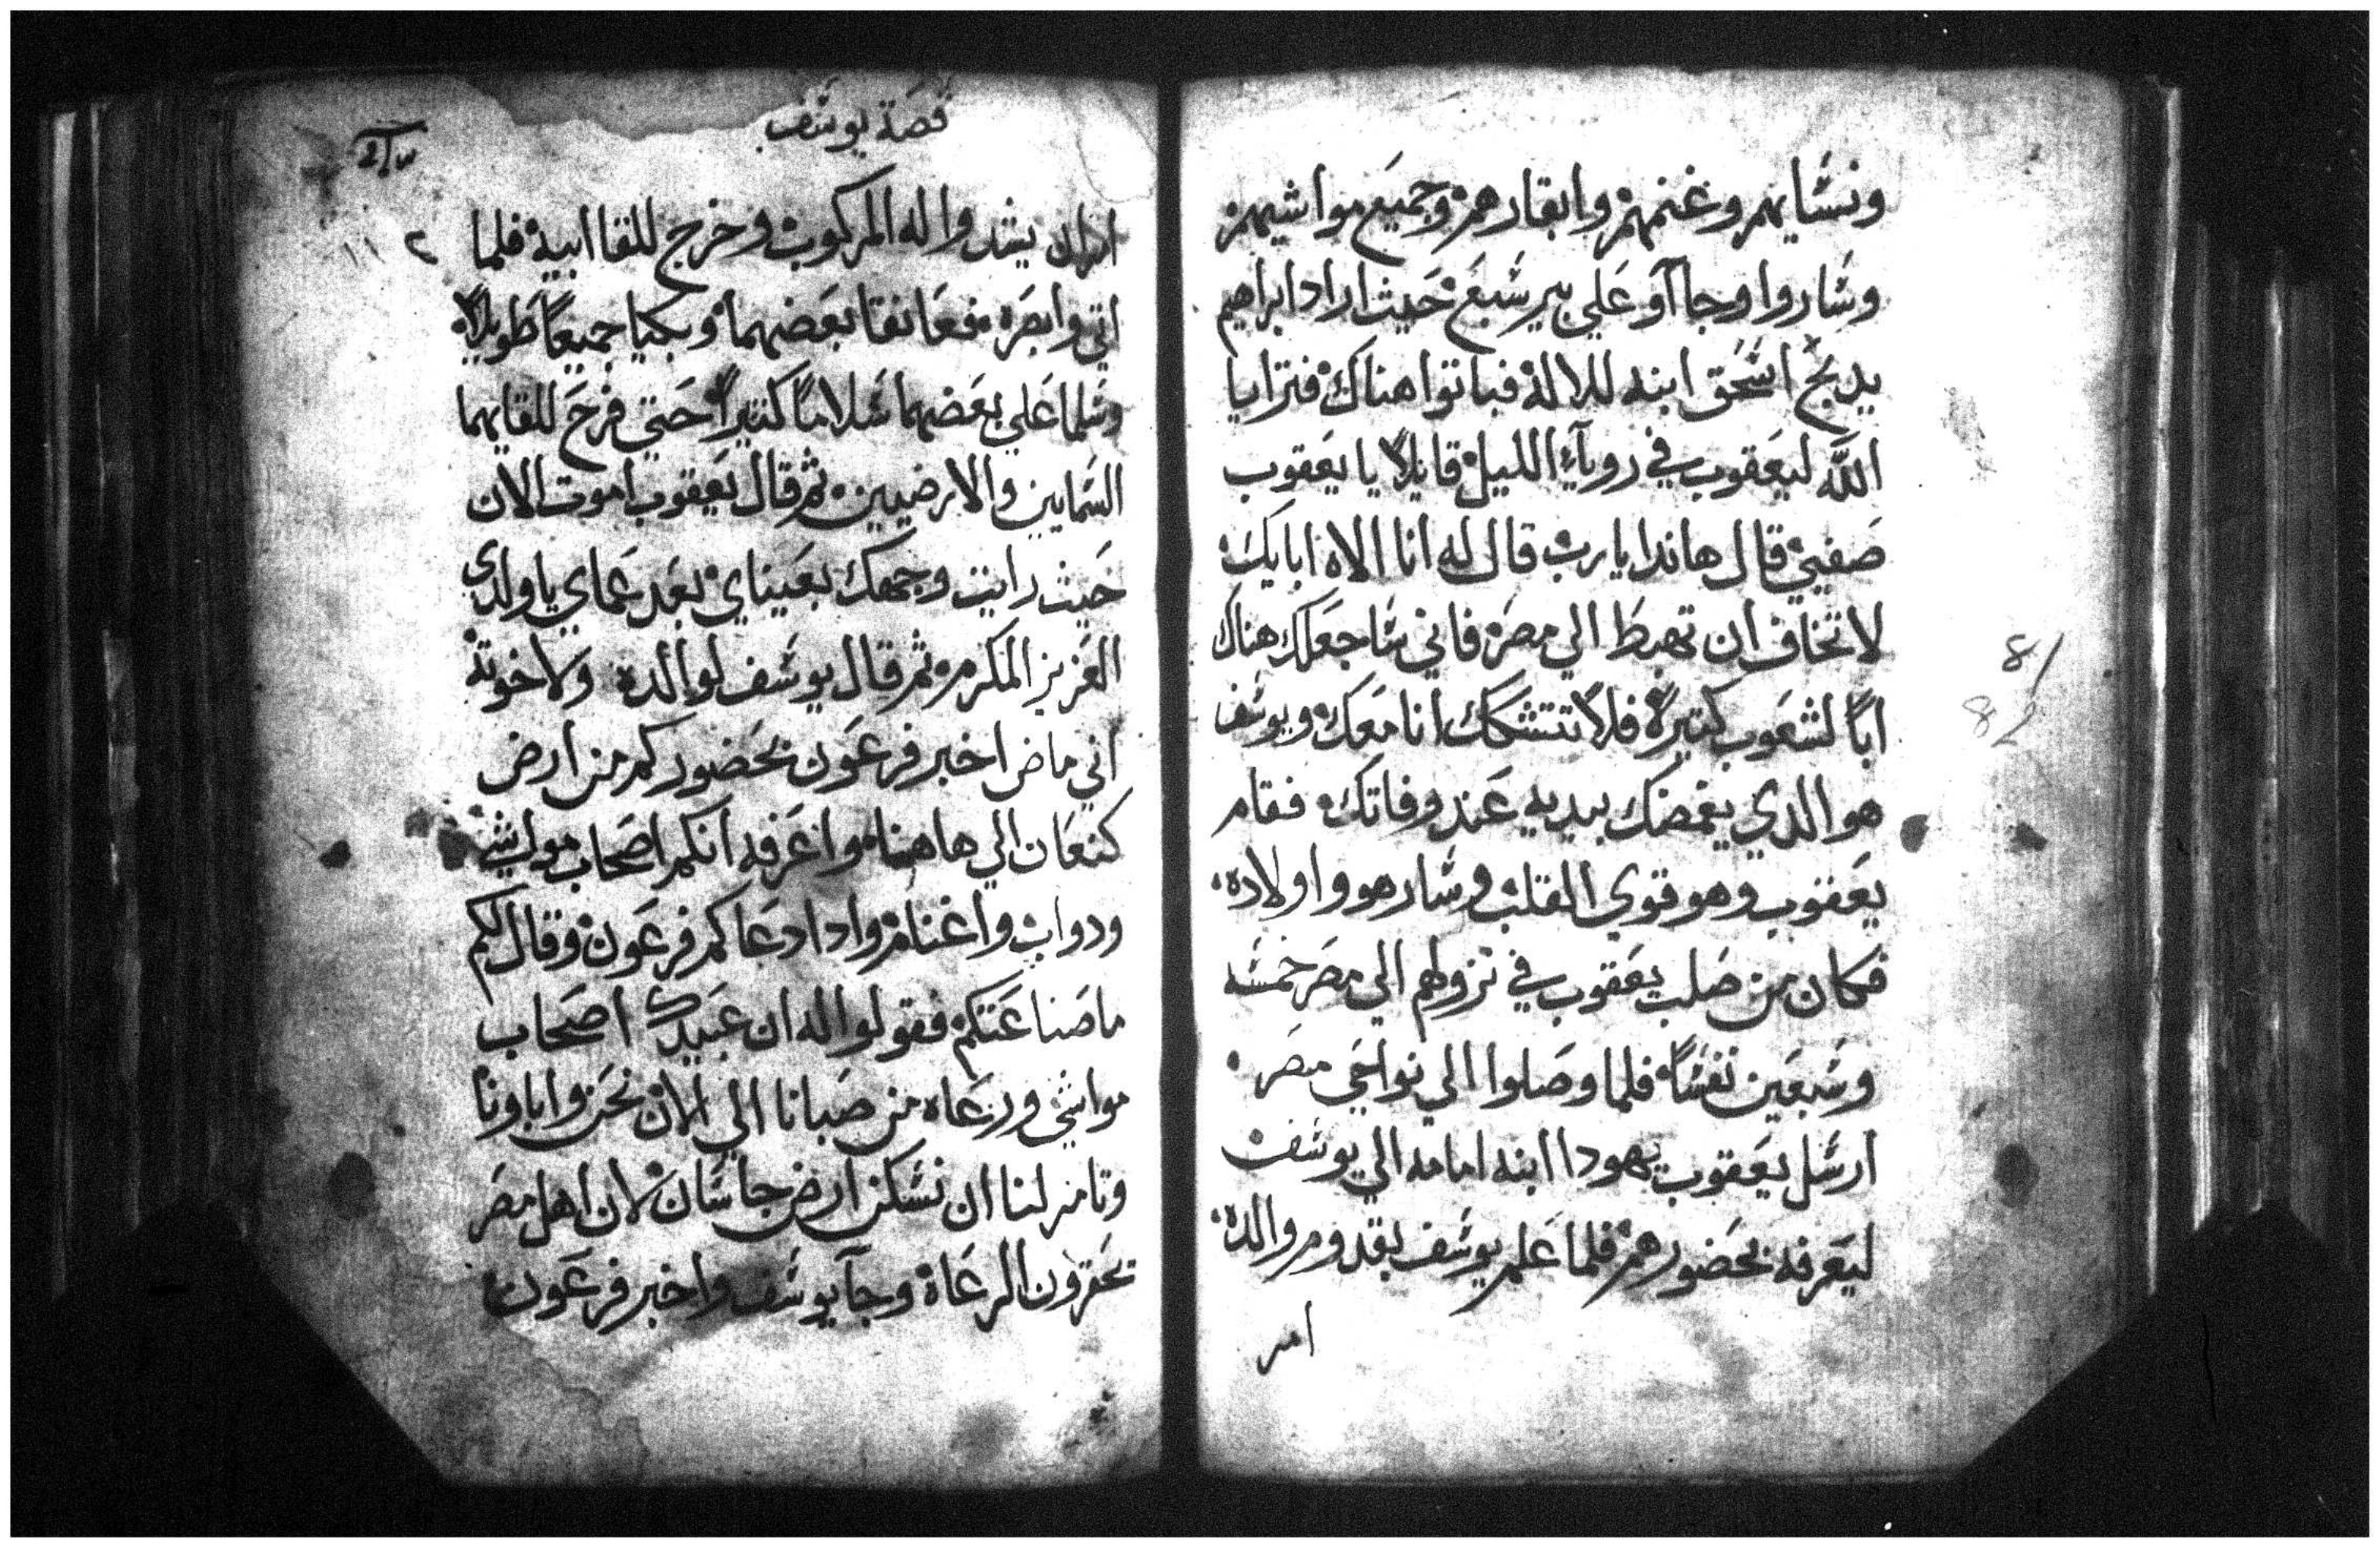 ونسايهم وغنمهم وابقارهم وجميع مواشيهم
وساروا وجاآو علي بير سبع حيث اراد ابراهيم
يدبح اسحق ابنه للاله فباتوا هناك فترايا
الله ليعقوب في روياء الليل قايلا يا يعقوب
صفيي قال هاندا يا رب قال له انا الاه ابايك
لا تخاف ان تهبط الي مصر فاني ساجعلك هناك
ابا لشعوب كتيره فلا تتشكك انا معك ويوسف
هو الدي يغمضك بيديه عند وفاتك فقام
يعقوب وهو قوي القلب وسار هو واولاده
فكان من صلب يعقوب في نزولهم الي مصر خمسه
وسبعين نفسا فلما وصلوا الي نواحي مصر
ارسل يعقوب يهودا ابنه امامه الي يوسف
ليعرفه بحضورهم فلما علم يوسف بقدوم والده
امر
81
82
قصة يوسف
امر ان يشدوا له المركوب وخرج للقا ابيه فلما
اتي وابصره فعانقا بعضهما وبكيا جميعا طويلا
وسلما علي بعضهما سلاما كتيرا حتي فرح للقايهما
السمايين والارضيين ثم قال يعقوب اموت الان
حيث رايت وجهك بعيناي بعد عماي يا ولدي
العزيز المكرم ثم قال يوسف لوالده ولاخوته
اني ماض اخبر فرعون بحضوركم من ارض
كنعان الي هاهنا واعرفه انكم اصحاب مواشي
ودواب واغنام وادا دعاكم فرعون وقال لكم
ما صناعتكم فقولوا له ان عبيدك اصحاب
مواشي ورعاه من صبانا الي الان نحن واباونا
وتامر لنا ان نسكن ارض جاسان لان اهل مصر
تحقرون الرعاة وجآ يوسف واخبر فرعون